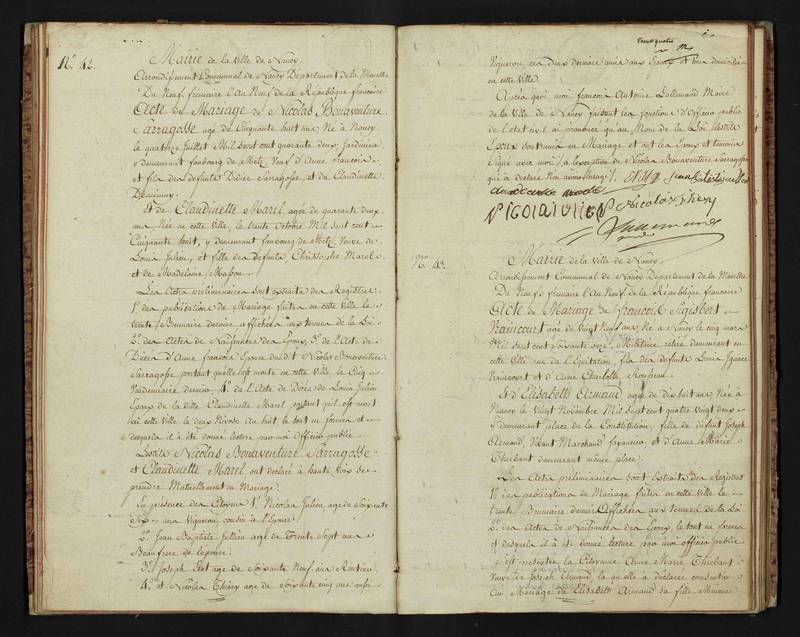 N.o 42.
Mairie de la Ville de Nancy
Arrondissement Communal de Nancy Département de la Meurthe
Du Neuf frimaire l'an Neuf de la République française
Acte de Mariage de Nicolas Bonaventure
Sarragosse age de Cinquante huit ans, Né à Nancy
le quatorze Juillet Mil sept cent quarante deux, Jardinier
y demeurant faubourg de Metz, Veuf d'Anne francoise
et fils des defunts Didier Sarragosse, et de Claudinette
Et de Claudinette Marel agée de quarante deux
ans Née en cette ville, le trente Octobre Mil sept cent
Cinquante huit, y demeurant faubourg de Metz, Veuve de
Louis Julien, et fille des defunts Christophe Marel
et de Madelaine Masson
Les Actes preliminaires sont extraits des Registres
1.o des publications de Mariage faites en cette Ville le
trente Brumaire dernier affichées aux termes de la Loi
2.o des Actes de Naissances des Epoux, 3.o de l'Acte de
Décès d'Anne françoise Epouse dudit Nicolas Bonaventure
Sarragosse portant qu'elle est morte en cette ville le Cinq
Vendemiaire dernier, 4.o de l'Acte de Décès de Louis Julien
Epoux de la ditte Claudinette Marel portant qu'il est mort
en cette Ville le deux Nivose An huit le tout en formes et
desquels il a été donné lecture par moi Officier public
Lesdits Nicolas Bonaventure Sarragosse
et Claudinette Marel ont déclaré à haute Voix se
prendre Mutuellement en Mariage
En présence des Citoyens 1.o Nicolas Julien, age de Soixante
Sept ans Vigneron, cousin à l'Epouse
2.o Jean Baptiste Jullien age de Trente Sept ans
Beaufrere de l'epouse
3.o Joseph age de Soixante Neuf ans Rentier
4.o et Nicolas Thiery age de Soixante cinq ans aussi
Vigneron, ces deux derniers amis aux Epoux et tous domiciliés
en cette Ville
Après quoi moi francois Antoine Lallemand Maire
de la Ville de Nancy faisant les fonctions d'Officier public
de l'etat civil ai prononcé qu'au Nom de la Loi lesdits
Epoux sont unis en Mariage et ont les Epoux et temoins
signé avec moi à l'exception de Nicolas Bonaventure Sarragosse
qui a déclaré Non
Nicolas Thiery
N.o 43.
Mairie de la Ville de Nancy
Arrondissement Communal de Nancy Département de la Meurthe
Du Neuf frimaire l'an Neuf de la République francaise
Acte de Mariage de francois Sigisbert
Vraincourt age de Vingt Neuf ans, Né à Nancy le cinq mars
Mil sept cent Soixante onze, Militaire retiré demeurant en
cette Ville rue de l'Equitation, fils des defunts Louis Ignace
Vraincourt et d'Anne Charlotte
Et d'Elisabeth Armand agée de dix huit ans, Née à
Nancy le Vingt Novembre Mil sept cent quatre Vingt deux
y demeurant place de la Constitution, fille de defunt Joseph
Armand, Vivant Marchand fayancier, et d'Anne Marie
Thiebaut demeurant même place
Les Actes preliminaires sont Extraits des Registres
1.o des publications de Mariage faites en cette Ville le
trente Brumaire dernier Affichées aux termes de la Loi
2.o des Actes de Naissances des Epoux, le tout en formes
et desquels il a été donné lecture par moi officier public
S'est présentée la Citoyenne Anne Marie Thiebaut
Veuve de Joseph Armand, laquelle a déclaré consentir
au Mariage de Elisabeth Armand sa fille Mineure